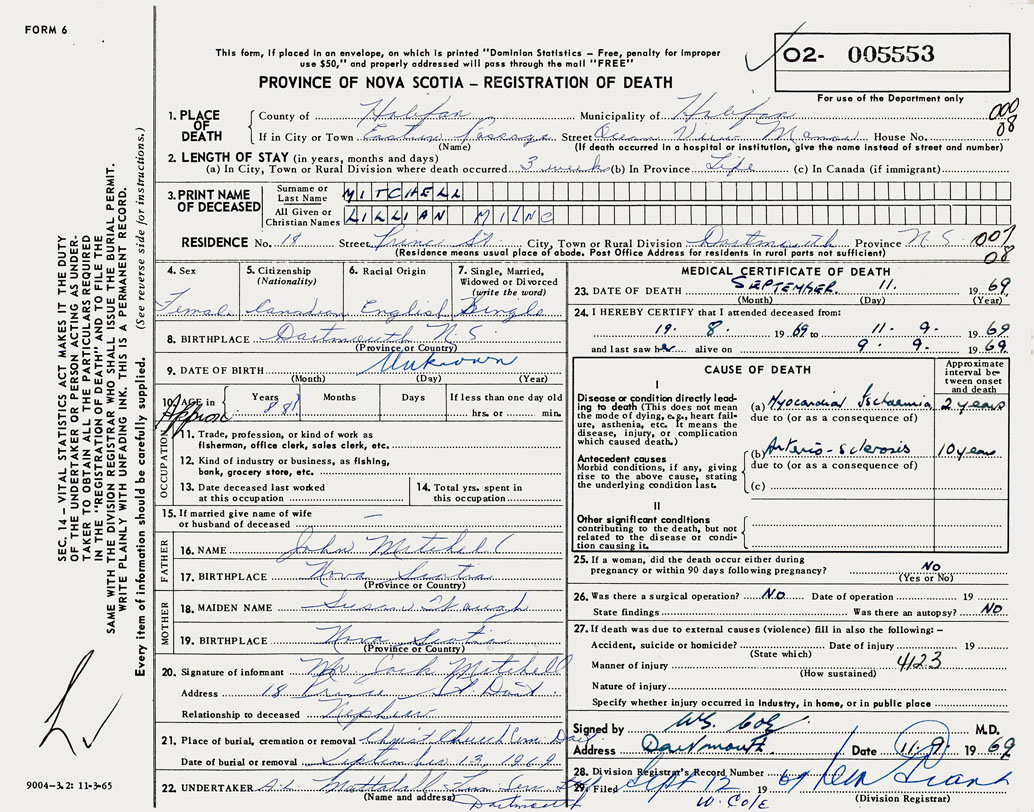 FORM 6
This form, if placed in an envelope, on which is printed "Dominion Statistics – Free, penalty for improper
use $50," and properly addressed will pass through the mail "FREE"
PROVINCE OF NOVA SCOTIA – REGISTRATION OF DEATH
O2- 005553
For use of the Department only
1. PLACE OF DEATH
County of Halifax Municipality of Halifax 000
If in City or Town Eastern Passage Street Ocean View Manor House No. 08
(Name) (If death occurred in a hospital or institution, give the name instead of street and number)
2. LENGTH OF STAY (in years, months and days)
(a) In City, Town or Rural Division where death occurred 3 weeks (b) In Province Life (c) In Canada (if immigrant)
3. PRINT NAME OF DECEASED
Surname or Last Name MITCHELL
All Given or Christian Names LILLIAN MILNE
RESIDENCE No. 18 Street Prince St. City, Town or Rural Division Dartmouth Province N S 007
(Residence means usual place of abode. Post Office Address for residents in rural parts not sufficient) 08
4. Sex 5. Citizenship (Nationality) 6. Racial Origin 7. Single, Married, Widowed or Divorced (write the word)
Female Canadian English Single
8. BIRTHPLACE Dartmouth N.S
(Province or Country)
9. DATE OF BIRTH Unknown
(Month) (Day) (Year)
10. AGE in Years Months Days If less than one day old
Approx 88 hrs. or min.
OCCUPATION
11. Trade, profession, or kind of work as
fisherman, office clerk, sales clerk, etc.
12. Kind of industry or business, as fishing,
bank, grocery store, etc.
13. Date deceased last worked
at this occupation
14. Total yrs. spent in
this occupation
15. If married give name of wife
or husband of deceased —
FATHER
16. NAME John Mitchell
17. BIRTHPLACE Nova Scotia
(Province or Country)
MOTHER
18. MAIDEN NAME Susan Waugh
19. BIRTHPLACE Nova Scotia
(Province or Country)
20. Signature of informant Mr. Jack Mitchell
Address 18 Prince St Dart.
Relationship to deceased Nephew
21. Place of burial, cremation or removal Christ Church Cem. Dart
Date of burial or removal September 13, 1969
22. UNDERTAKER
(Name and address) Dartmouth
MEDICAL CERTIFICATE OF DEATH
23. DATE OF DEATH SEPTEMBER 11. 1969
(Month) (Day) (Year)
24. I HEREBY CERTIFY that I attended deceased from:
19. 8. 1969 to 11. 9. 1969
and last saw her alive on 9. 9. 1969.
CAUSE OF DEATH
Approximate interval between onset and death
I
Disease or condition directly leading to death (This does not mean the mode of dying, e.g., heart failure, asthenia, etc. It means the disease, injury, or complication which caused death.)
(a) Myocardial Ischaemia 2 years
due to (or as a consequence of)
Antecedent causes
Morbid conditions, if any, giving rise to the above cause, stating the underlying condition last.
(b) Arterio-sclerosis 10 years
due to (or as a consequence of)
(c)
II
Other significant conditions
contributing to the death, but not related to the disease or condition causing it.
25. If a woman, did the death occur either during
pregnancy or within 90 days following pregnancy? No
(Yes or No)
26. Was there a surgical operation? No Date of operation 19
State findings Was there an autopsy? No
27. If death was due to external causes (violence) fill in also the following: –
Accident, suicide or homicide? Date of injury 19
(State which) 4123
Manner of injury
(How sustained)
Nature of injury
Specify whether injury occurred in industry, in home, or in public place
Signed by M.D.
Address Dartmouth. Date 11.9. 1969
28. Division Registrar's Record Number
29. Filed Sept 12 1969
W. Cole (Division Registrar)
SEC. 14 – VITAL STATISTICS ACT MAKES IT THE DUTY
OF THE UNDERTAKER OR PERSON ACTING AS UNDER-
TAKER TO OBTAIN ALL THE PARTICULARS REQUIRED
IN THE "REGISTRATION OF DEATH" AND TO FILE THE
SAME WITH THE DIVISION REGISTRAR WHO SHALL ISSUE THE BURIAL PERMIT.
WRITE PLAINLY WITH UNFADING INK. THIS IS A PERMANENT RECORD.
Every item of information should be carefully supplied. (See reverse side for instructions.)
9004-3.2: 11-3-65